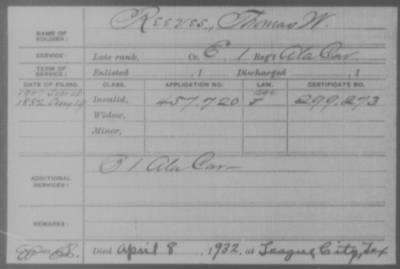 NAME OF SOLDIER: Reeves, Thomas W.
SERVICE: Late rank, Co. E, 1 Reg't Ala Cav.
TERM OF SERVICE: Enlisted , 1 Discharged , 1
DATE OF FILING. CLASS. APPLICATION NO. LAW. CERTIFICATE NO.
1882 Aug 14 Invalid, 457.720 299.273
Widow,
Minor,
ADDITIONAL SERVICES: E 1 Ala Cav
REMARKS:
Died April 8, 1932, at League City, Tex